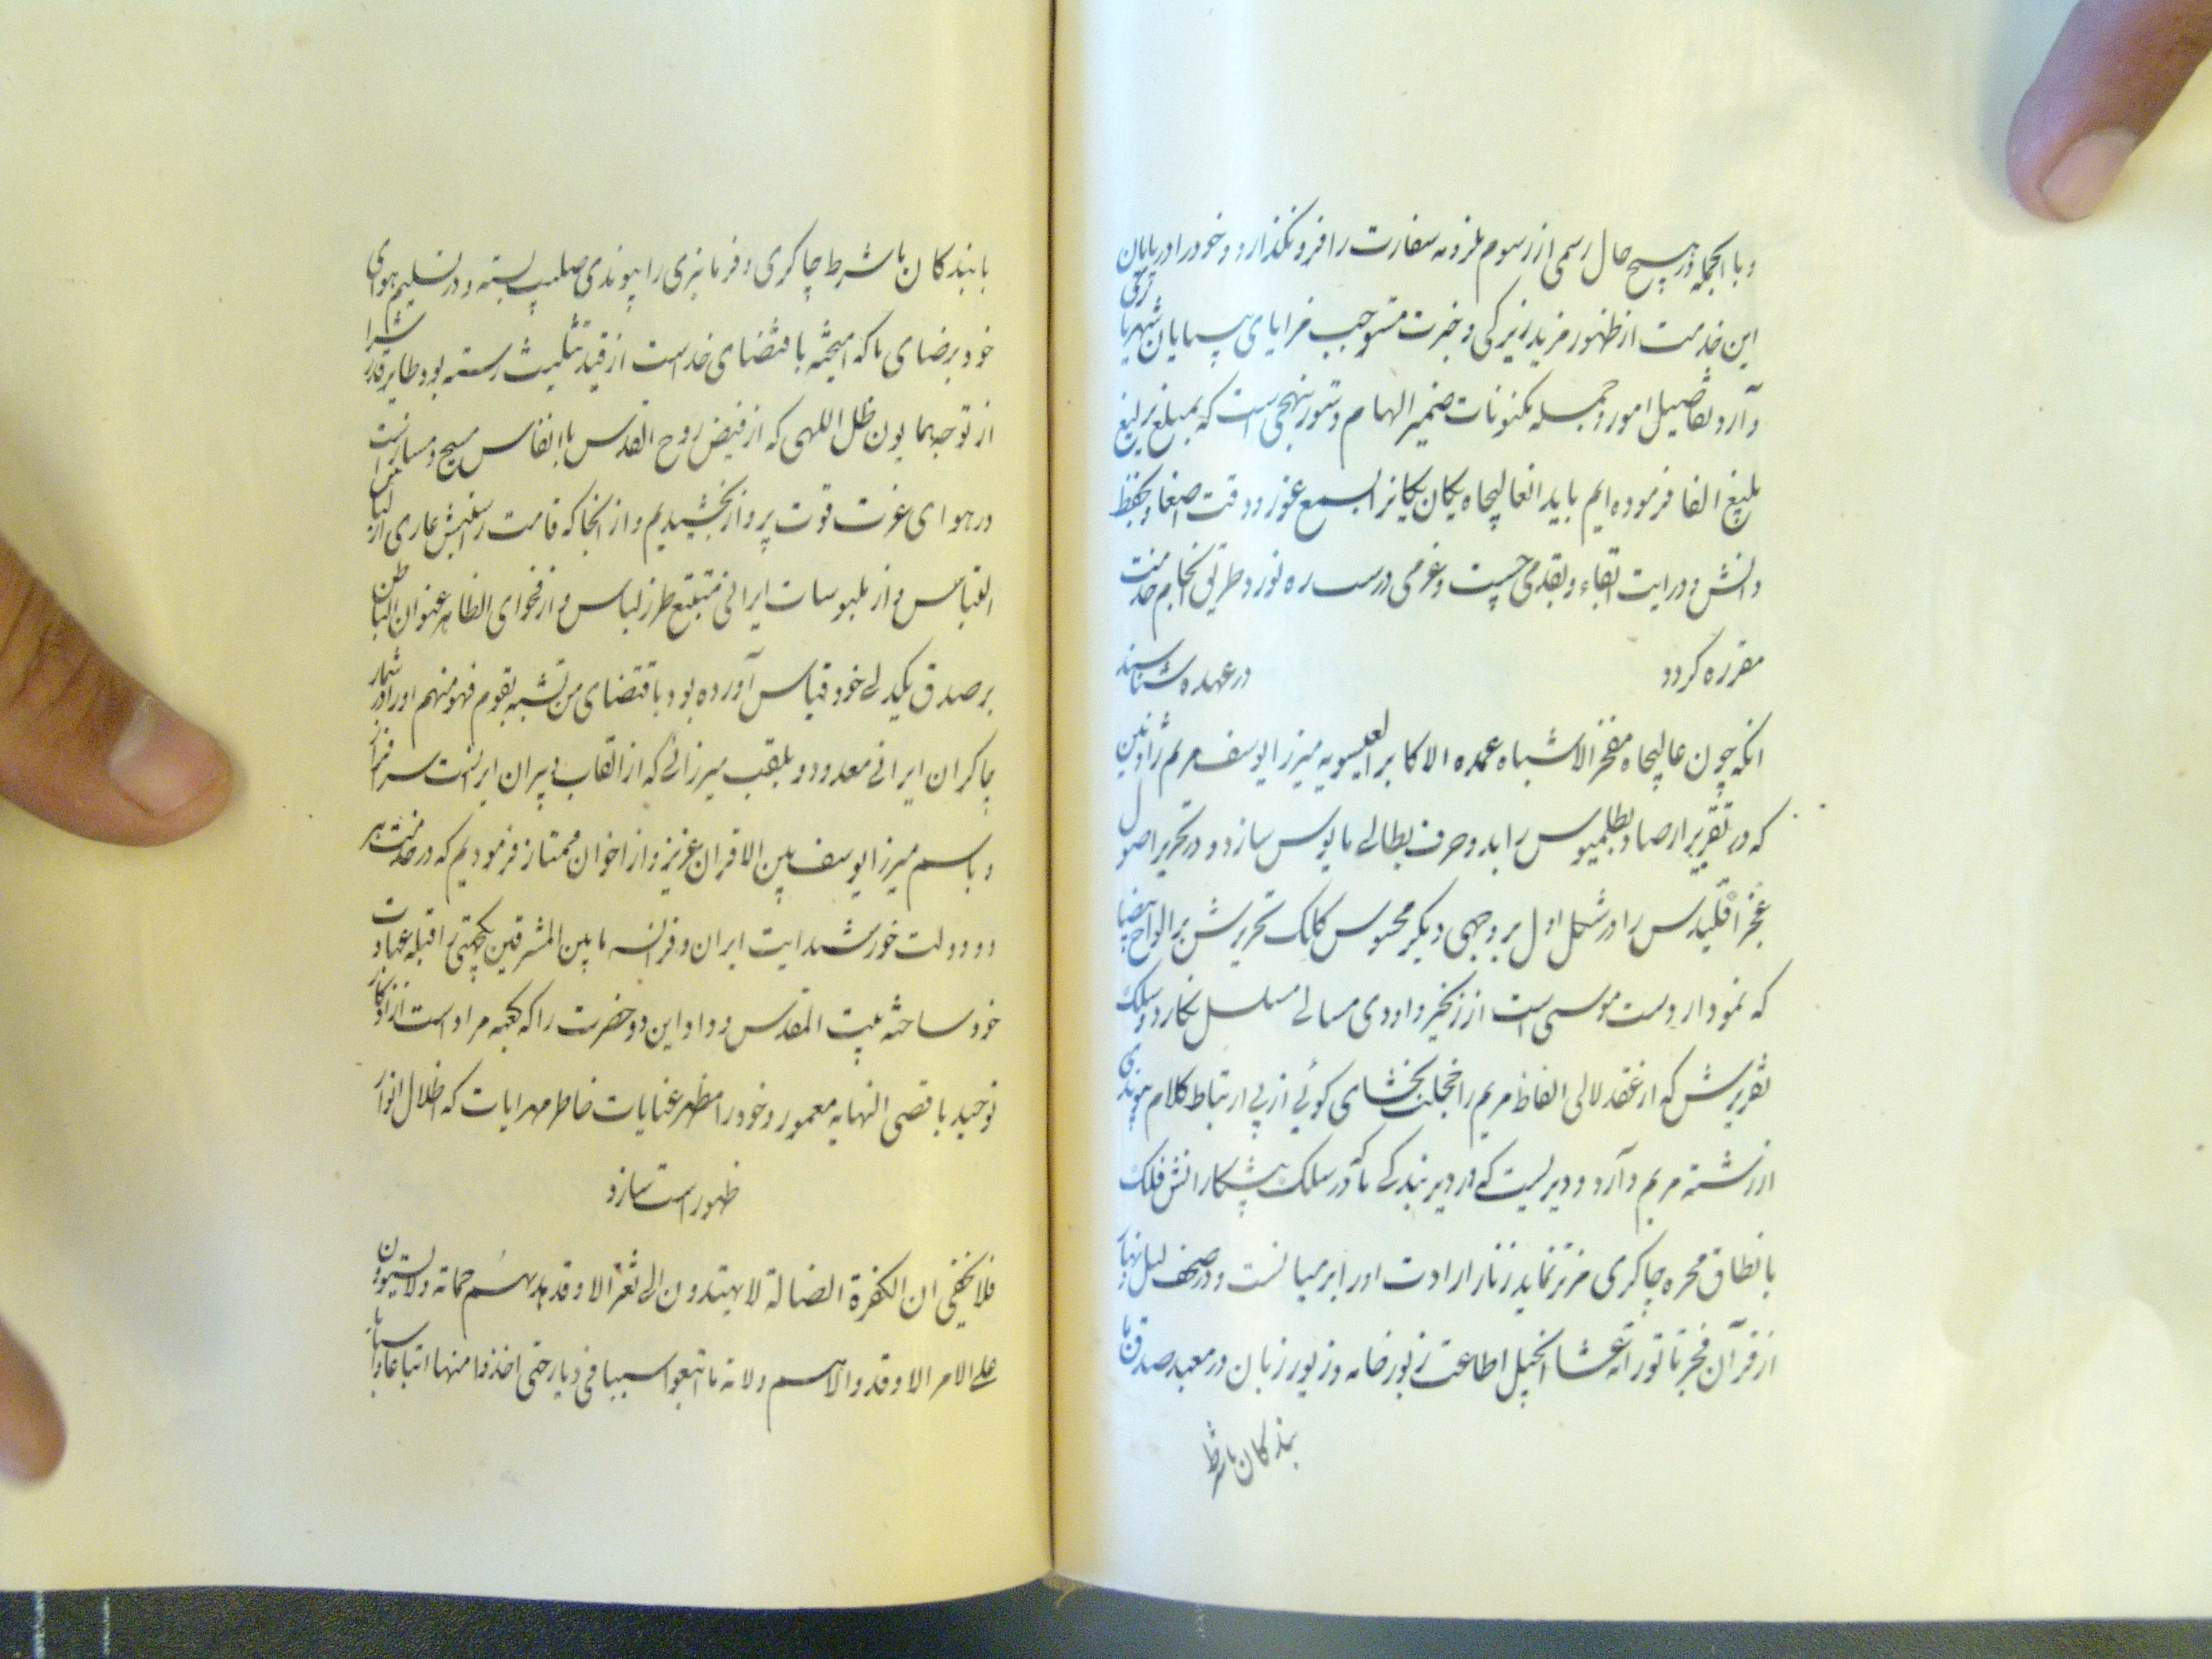 و بالجمله در هیچ حال رسمی از رسوم ملزومه سفارت را فرو نگذارد و خود را در پایان
این خدمت از ظهور مزید زیرکی و خبرت مستوجب مزایای بی پایان شهریاری
و آرد تفاصیل امور و جمله مکنونات ضمیر الهام دستور بنهجی است که بمبلغ بریغ
بلیغ القا فرموده ایم باید انعالیجاه یکان یکانرا بسمع عوز و دقت اصغا و بحفظ
دانش و درایت ابقاء و بقدمی چست و عزمی درست ره نورد طریق انجام خدمت
مقرره گردد در عهده شناسند
انکه چون عالیجاه مفخر الاشباه عمده الاکابر العیسویه میرزا یوسف مریم
که در تقریر ارصاد بطلمیوس را بدو حرف بطالی مایوس سازد و در تحریر اصول
عجز اقلیدس را در شکل اول بر وجهی دیگر محسوس کلک تحریرش بر الواح بیضا
که نمودار دست موسی است از زنجیر داودی مسالی مسلسل نگارد و سلک
تقریرش که از عقد لالی الفاظ مریم را خجلت بخشای گوئی از پی ارتباط کلام پیوندی
از رشته مریم دآرد و دیریست که در دیر بندگی ما که در سلک پیشکارانش فلک
با نطاق مجره چاکری مرتبر نماید زنار ارادت او را بر میانست و در صحف لیل و نهار
از قرآن فجر تا توراة عشا انجیل اطاعت زبور خامه و زیور زبان در معبد صدق با
بندکان با شرط
با بندکان با شرط چاکری و فرمانبری را پیوندی صلیب بسته و در تسلیم هوای
خود برضای ما که امیخته با قتضای خداست از قید تثلیث رسته بود طایر قدرش را
از توجه همایون ظل اللهی که از فیض روح القدس با انفاس مسیح دمساز است
در هوای عزت قوت پرواز بخشیدیم و از انجا که قامت عاری از لباس
التباس و از ملبوسات ایرانی متتبع طرز لباس و از فحوای الظاهر عنوان الباطن
بر صدق یکدلی خود قیاس آورده بود باقتضای من تشبه بقوم فهو منهم او را در شمار
چاکران ایرانی معدود و بلقب میرزائی که از القاب دبیران ایرانست سرافراز
و باسم میرزا یوسف بین الاقران عزیز و از اخوان ممتاز فرمودیم که در خدمت هر
دو دولت خورشید ایت ایران و فرانسه ما بین المشرقین بکجهتی قبله عبادت
خود ساخته بیت المقدس وداد این دو حضرت را که کعبه مراد است از اذکار
توحید باقصی النهایه معمور و خود را مظهر عنایات خاطر مهرایات که اظلال انوار
ظهور است سازد
فلا یخفی ان الکفرة الضالة لا یهتدون الی ثغر الا و قد یدبرهم حماته ولا یستوون
علی الامر الا و قد والاهم ولاته ما اتبعوا سببا فی دیار حتی اخذوا منها اتباعا و